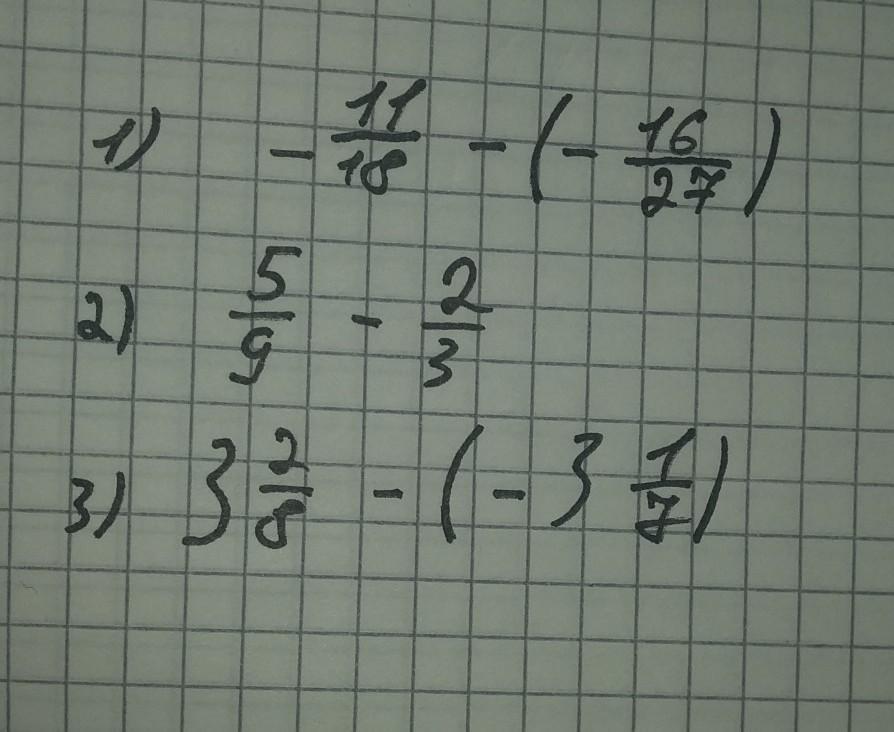 1) - 11/18 - (- 16/27)
2) 5/9 - 2/3
3) 3 2/8 - (- 3 1/7)